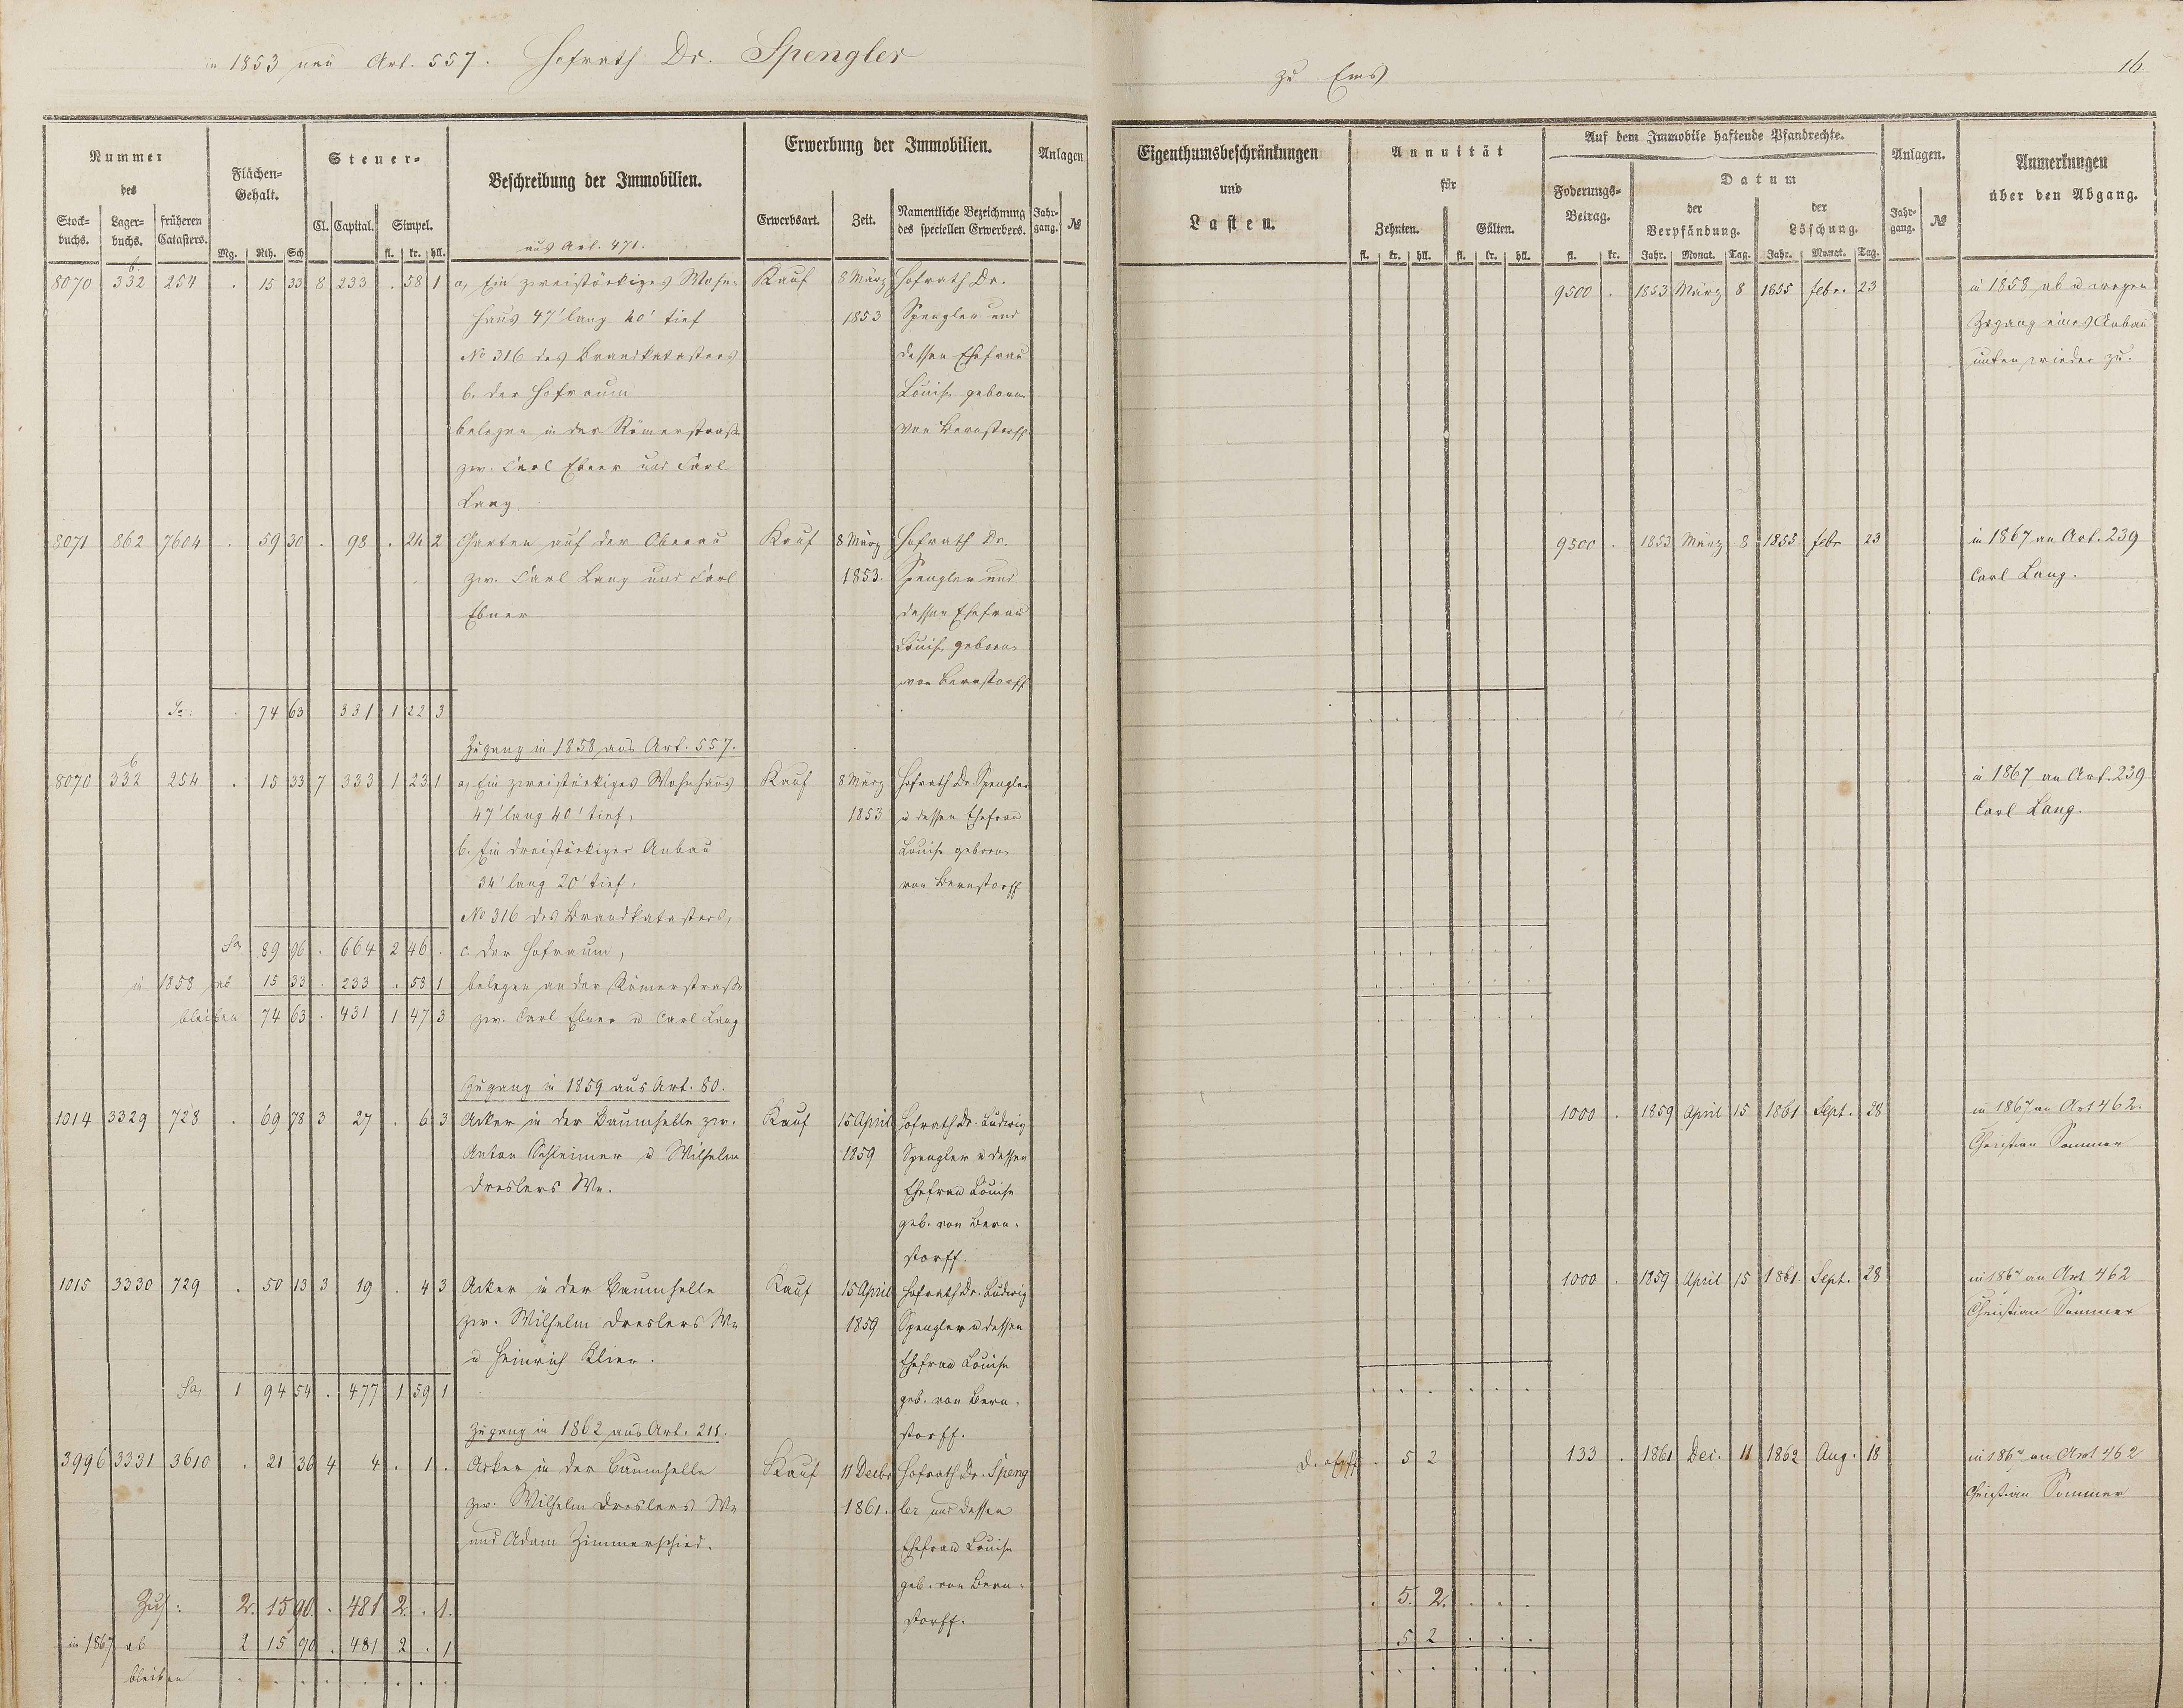 in 1853 neu Art. 557. Hofrath Dr. Spengler
zu Ems
16
Nummer
des
Stock=
buchs.
Lager=
buchs.
früheren
Catasters.
Flächen=
Gehalt.
Mg. Rth. Sch
Steuer=
Cl. Capital. Simpel.
fl. kr. hll.
Beschreibung der Immobilien.
aus Art. 471.
Erwerbung der Immobilien.
Erwerbsart. Zeit.
Namentliche Bezeichnung
des speciellen Erwerbers.
Anlagen
Jahr=
gang. №
Eigenthumsbeschränkungen
und
Lasten.
Annuität
für
Zehnten. Gülten.
fl. kr. hll. fl. kr. hll.
Auf dem Immobile haftende Pfandrechte.
Foderungs=
Betrag.
fl. kr.
Datum
der
Verpfändung.
Jahr. Monat. Tag.
der
Löschung.
Jahr. Monat. Tag.
Anlagen.
Jahr=
gang. №
Anmerkungen
über den Abgang.
b.
8070 332 254 . 15 33 8 233 . 58 1 a, Ein zweistöckiges Wohn= Kauf 8 März Hofrath Dr. 9500 . 1853 März 8 1855 febr. 23 in 1858 ab u wegen
haus 47' lang 40' tief 1853 Spengler und Zugang eines Anbau
No 316 des Brandkatasters dessen Ehefrau unten wieder zu.
b. der Hofraum Louise geborne
belegen in der Römerstraße von Bernstorff
zw. Carl Ebner und Carl
Lang
8071 862 7604 . 59 30 . 98 . 24 2 Garten auf der Oberau Kauf 8 März Hofrath Dr. 9500 . 1853 März 8 1855 febr 23 in 1867 an Art. 239
zw. Carl Lang und Carl 1853. Spengler und Carl Lang.
Ebner dessen Ehefrau
Louise geborne
von Bernstorff
Sa: . 74 63 331 1 22 3
Zugang in 1858 aus Art. 557.
b
8070 332 254 . 15 33 7 333 1 23 1 a, Ein zweistöckiges Wohnhaus Kauf 8 März Hofrath Dr Spengler in 1867 an Art. 239
47' lang 40' tief, 1853 u dessen Ehefrau Carl Lang.
b. Ein dreistöckiger Anbau Louise geborne
34' lang 20' tief, von Bernstorff
No 316 des Brandkatasters,
Sa 89 96 . 664 2 46 . c. der Hofraum,
in 1858 ab 15 33 . 233 . 58 1 belegen an der Römerstraße
bleiben 74 63 . 431 1 47 3 zw. Carl Ebner u Carl Lang
Zugang in 1859 aus Art. 80.
1014 3329 728 . 69 78 3 27 . 6 3 Acker in der Baumhelle zw. Kauf 15 April Hofrath Dr. Ludwig 1000 . 1859 April 15 1861 Sept. 28 in 1867 an Art 462.
Anton Schleimer u Wilhelm 1859 Spengler u dessen Christian Sommer
Dreslers We. Ehefrau Louise
geb. von Bern=
storff.
1015 3330 729 . 50 13 3 19 . 4 3 Acker in der Baumhelle Kauf 15 April Hofrath Dr. Ludwig 1000 . 1859 April 15 1861 Sept. 28 in 1867 an Art 462
zw. Wilhelm Dreslers We 1859 Spengler u dessen Christian Sommer
u Heinrich Klien. Ehefrau Louise
Sa, 1 94 54 . 477 1 59 1 geb. von Bern=
Zugang in 1862 aus Art. 211. storff.
3996 3331 3610 . 21 36 4 4 . 1 . Acker in der Baumhelle Kauf 11 Decbr Hofrath Dr. Speng . 5 2 133 . 1861 Dec. 11 1862 Aug. 18 in 1867 an Art 462
zw. Wilhelm Dreslers We 1861. ler und dessen Christian Sommer
und Adam Zimmerschied. Ehefrau Louise
geb. von Bern=
storff.
Zus: 2. 15 90. . 481 2. . 1. . 5. 2. . . .
in 1867 ab 2 15 90 . 481 2 . 1 5 2 . . .
bleiben . . . . . . . .